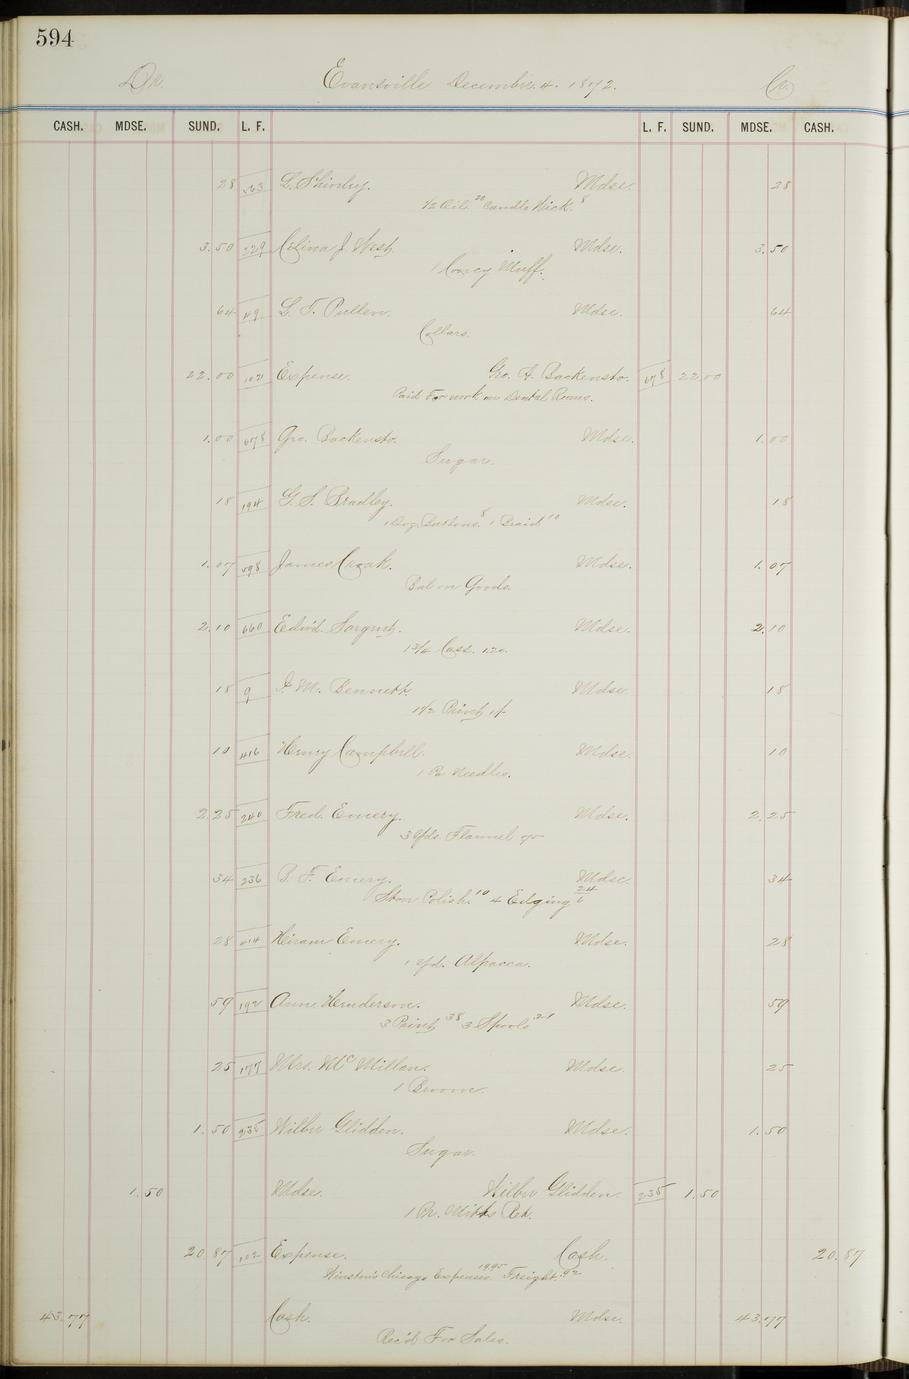 594
Dr. Evansville December 4. 1872. Cr.
CASH. MDSE. SUND. L. F. L. F. SUND. MDSE. CASH.
28 L. Mdse. 28
1/2 Oil 20 Candle Wick 8
3.50 229 J. West Mdse. 3.50
1 Muff.
64 L. T. Pullen. Mdse. 64
Collars.
22.00 102 Expense. Geo. A. Backensto. 678 22.00
Paid For work on Dental Rooms.
1.00 678 Geo. Backensto. Mdse. 1.00
Sugar.
18 194 G. S. Bradley. Mdse. 18
1 Doz. Buttons 8 1 Braid 10
1.07 598 James Croak. Mdse. 1.07
Bal on Goods.
2.10 660 Edw'd. Sargent. Mdse. 2.10
1 3/4 Cass. 1.20.
18 9 M. Bennett. Mdse. 18
1 1/2 Print
10 416 Henry Campbell. Mdse. 10
1 Needles.
2.25 240 Fred. Emery. Mdse. 2.25
3 Yds. Flannel 75
34 236 B. F. Emery. Mdse. 34
Stove Polish 10 4 Edging 24 6
28 Hiram Emery. Mdse. 28
1 Yd. Alpacca.
59 192 Ann Henderson. Mdse. 59
3 Print 38 3 Spools 21
25 177 Mrs. McMillan. Mdse. 25
1 Broom.
1.50 235 Wilbur Glidden. Mdse. 1.50
Sugar.
1.50 Mdse. Wilbur Glidden. 235 1.50
1 Pr. Mitts Ret.
20.87 102 Expense. Cash. 20.87
Winston's Chicago Expenses 19.95 Freight .92
43.77 Cash. Mdse. 43.77
Rec'd For Sales.